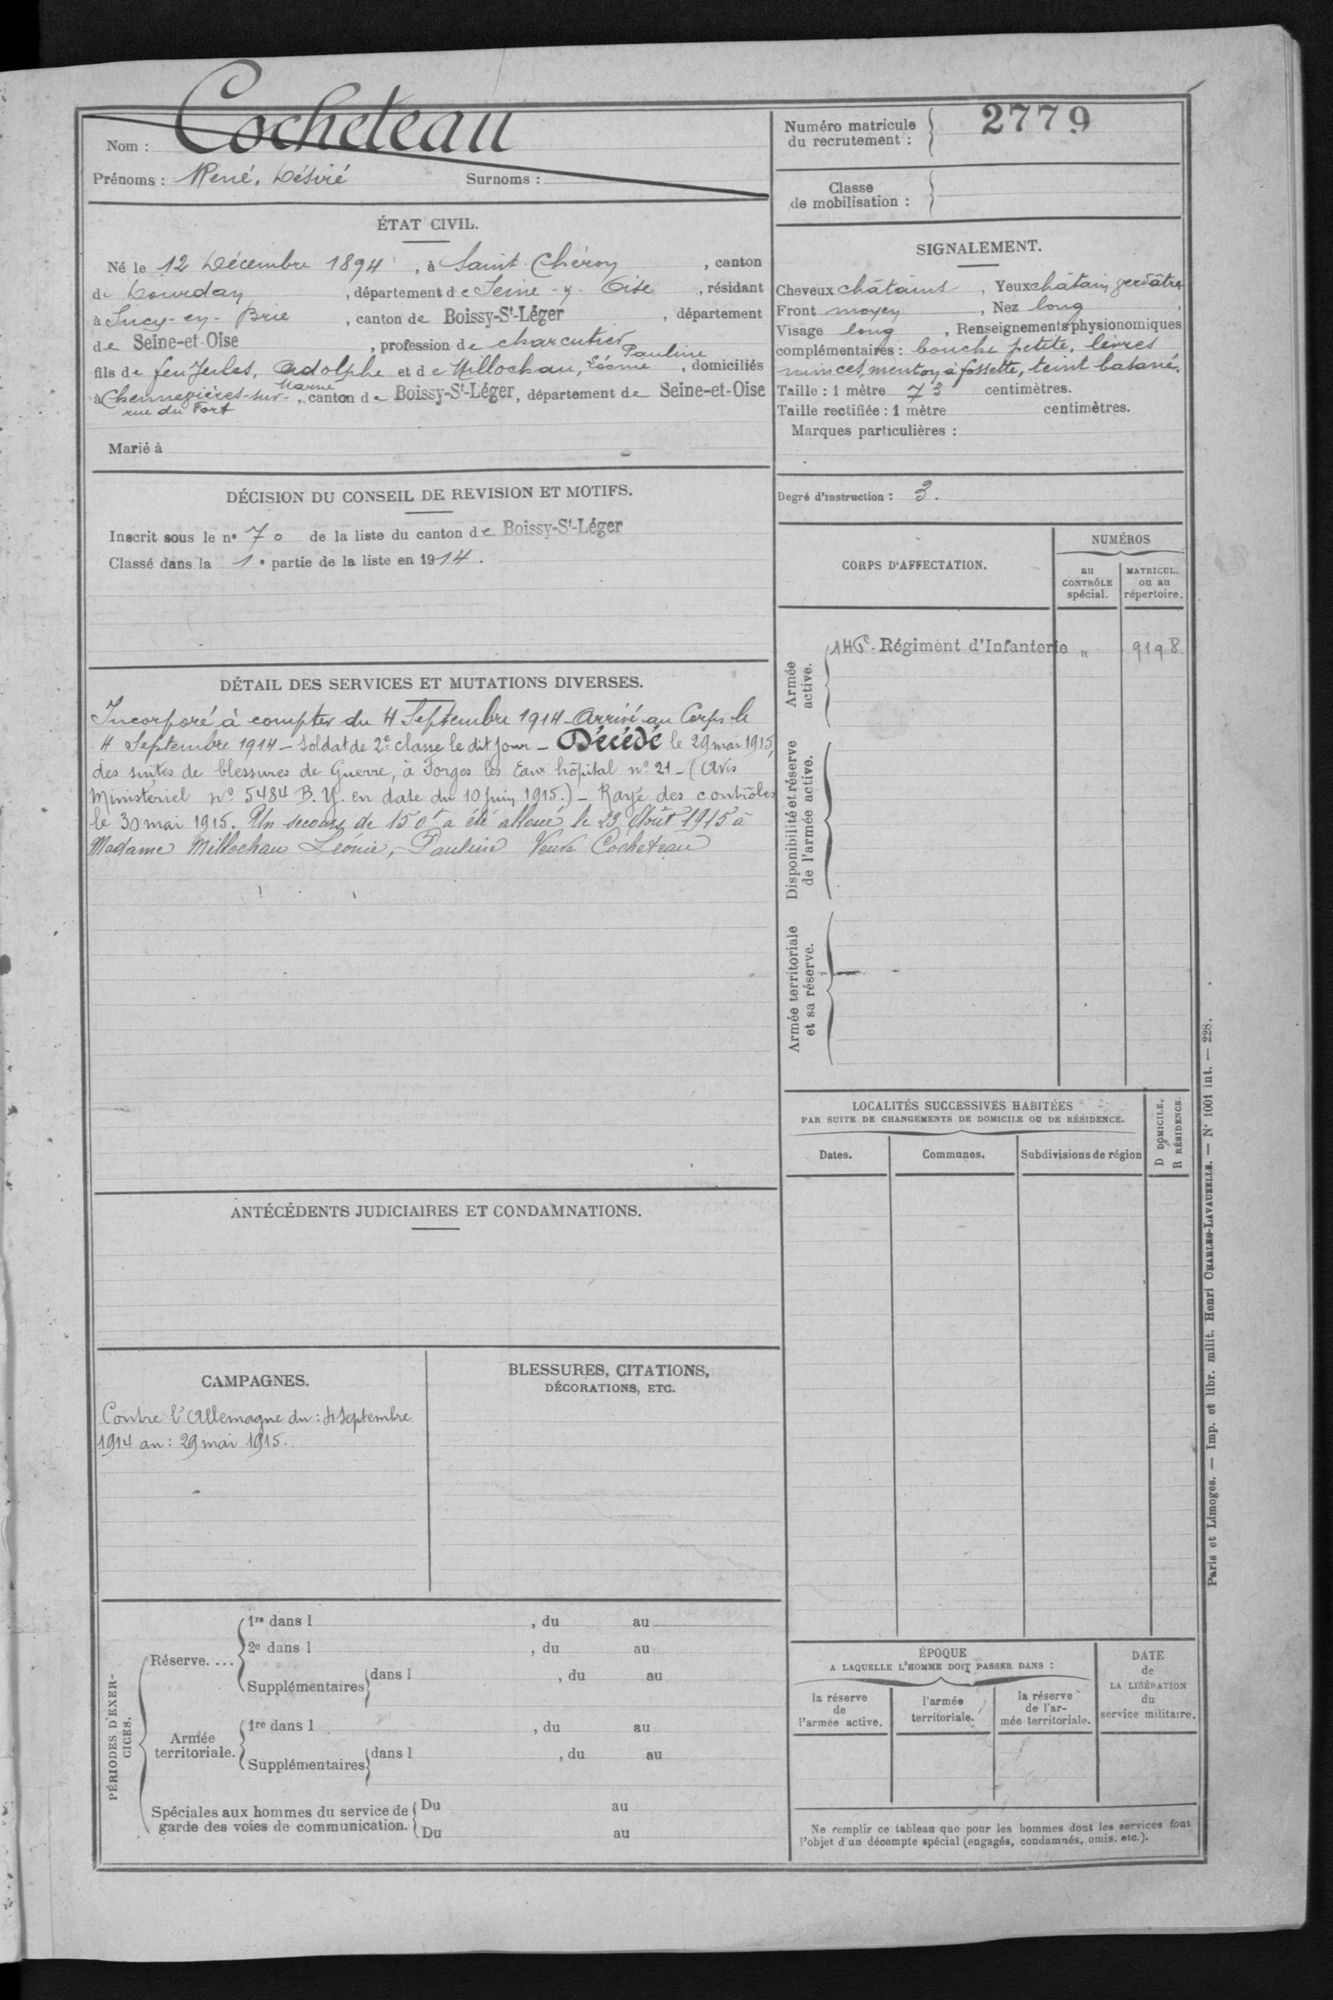 Nom : Cocheteau
Prénoms : René, Désiré Surnoms :
Numéro matricule du recrutement : 2779
Classe de mobilisation :
ÉTAT CIVIL.
Né le 12 Décembre 1894, à Saint-Chéron, canton
de Dourdan, département de Seine-y-Oise, résidant
à Sucy-en-Brie, canton de Boissy-St-Léger, département
de Seine-et-Oise, profession de charcutier
fils de feu Jules, Adolphe et de Millochau, Léonie Pauline, domiciliés
à Chennevières-sur-Marne rue du Fort, canton de Boissy-St-Léger, département de Seine-et-Oise
Marié à
SIGNALEMENT.
Cheveux châtains, Yeux châtain verdâtre,
Front moyen, Nez long,
Visage long, Renseignements physionomiques
complémentaires : bouche petite, lèvres
minces, menton à fossette, teint basané.
Taille : 1 mètre 73 centimètres.
Taille rectifiée : 1 mètre centimètres.
Marques particulières :
Degré d'instruction : 3.
DÉCISION DU CONSEIL DE REVISION ET MOTIFS.
Inscrit sous le n° 70 de la liste du canton de Boissy-St-Léger
Classé dans la 1e partie de la liste en 1914.
CORPS D'AFFECTATION.
NUMÉROS
au CONTRÔLE spécial.
MATRICUL. ou au répertoire.
Armée active.
146e Régiment d'Infanterie " 9198
Disponibilité et réserve de l'armée active.
Armée territoriale et sa réserve.
DÉTAIL DES SERVICES ET MUTATIONS DIVERSES.
Incorporé à compter du 4 Septembre 1914 - Arrivé au Corps le
4 Septembre 1914 - Soldat de 2e classe le dit jour - Décédé le 29 mai 1915,
des suites de blessures de Guerre, à Forges les Eaux hôpital n° 21 - (Avis
Ministériel n° 5484 B. Y. en date du 10 juin 1915.) - Rayé des contrôles
le 30 mai 1915. Un secours de 150f a été alloué le 23 Août 1915 à
Madame Millochau Léonie, Pauline Veuve Cocheteau
LOCALITÉS SUCCESSIVES HABITÉES
PAR SUITE DE CHANGEMENTS DE DOMICILE OU DE RÉSIDENCE.
Dates. Communes. Subdivisions de région
D DOMICILE.
R RÉSIDENCE.
ANTÉCÉDENTS JUDICIAIRES ET CONDAMNATIONS.
CAMPAGNES.
Contre l'Allemagne du : 4 septembre
1914 au : 29 mai 1915.
BLESSURES, CITATIONS,
DÉCORATIONS, ETC.
PÉRIODES D'EXERCICES.
Réserve....
1re dans l , du au
2e dans l , du au
Supplémentaires dans l , du au
Armée territoriale.
1re dans l , du au
Supplémentaires dans l , du au
Spéciales aux hommes du service de garde des voies de communication.
Du au
Du au
ÉPOQUE
A LAQUELLE L'HOMME DOIT PASSER DANS :
la réserve de l'armée active.
l'armée territoriale.
la réserve de l'armée territoriale.
DATE de LA LIBÉRATION du service militaire.
Ne remplir ce tableau que pour les hommes dont les services font
l'objet d'un décompte spécial (engagés, condamnés, omis, etc.).
Paris et Limoges. — Imp. et libr. milit. Henri CHARLES-LAVAUZELLE. — N° 1001 int. — 228.